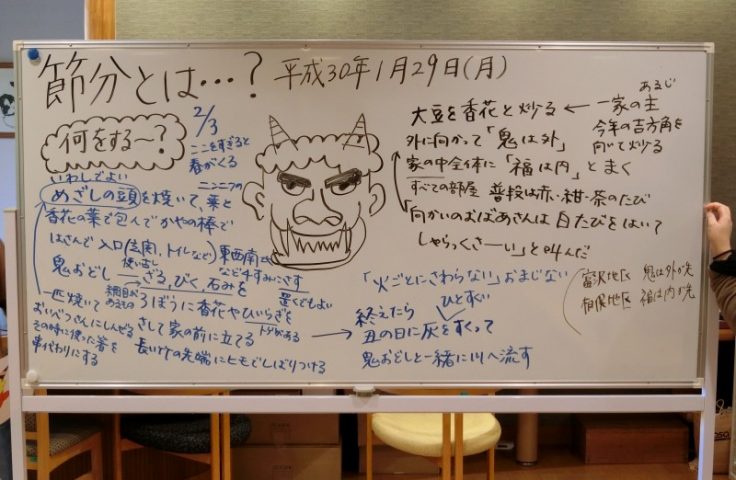 節分とは…？ 平成30年1月29日(月)
何をする〜？
2/3
ここをすぎると
春がくる
いわしでよい
ニンニクの
めざしの頭を焼いて、葉と
香花の葉で包んでかやの棒で
はさんで入口(玄関、トイレなど)東西南北
など4すみにさす
置くでもよい
使い古し
鬼おどし ざる、びく、石みを
網目があるもの
3ぼうに香花やひいらぎを
トゲがある
さして家の前に立てる
長い竹の先端にヒモでしばりつける
一匹焼いて
おいべっさんにしんぜる
その時に使った箸を
串代わりにする
あるじ
大豆を香花と炒る ← 一家の主
今年の吉方角を
向いて炒る
外に向かって「鬼は外」
家の中全体に「福は内」とまく
すべての部屋 普段は赤・紺・茶のたび
「向かいのおばあさんは白たびをはいて
しゃらっくさーい」と叫んだ
「火ごとにさわらない」おまじない
ひとすくい
終えたら
丑の日に灰をすくって
鬼おどしと一緒に川へ流す
富沢地区 鬼は外が先
相俣地区 福は内が先